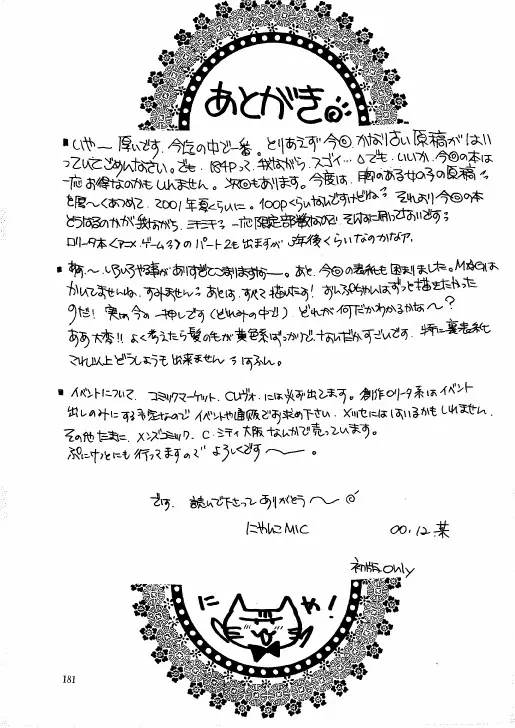 あとがき
▪いや〜厚いです。今迄の中で一番。とりあえず今回かなり古い原稿がはい
っていてごめんなさい。でも、184Pって、我ながら、スゴイ… でも、いいか、今回の本は
一応お得なのかもしれません。次回もあります。今度は、胸のある女の子の原稿
を暖〜くあつめて、2001年夏くらいに。100pくらいなんですけどね それより今回の本
どうなるのかが我ながら、ドキドキ 一応限定部数なので、そんなに刷ってないです
ロリータ本<アニメ、ゲーム>のパート2も出ますが、1年後くらいなのかなァ。
▪あぁ〜、いろいろ事がありすぎてこまりますナー。あと、今回の表紙も困りました。
かいてませんね、すみません あとは、すべて描いたぞ! おんぷちゃんはずっと描きたかった
のだ! 実は今の一押しです(どれみの中で) どれが何だかわかるかな〜?
ああ大変!! よく考えたら髪の毛が黄色系ばっかりで
これ以上どうしようも出来ません
▪イベントについて、コミックマーケット、Cレヴォ、には必ず出てます。創作ロリータ系はイベント
出しのみにする予定なので イベントや通販でお求め下さい、メッセにははいるかもしれません。
その他たまに、メンズコミック、C.シティ大阪なんかで売っています。
ぷにケットにも行ってますので よろしくです〜。
では、読んで下さって ありがとう〜
にゃんこMIC 00.12.某
初版only
にゃ!
181